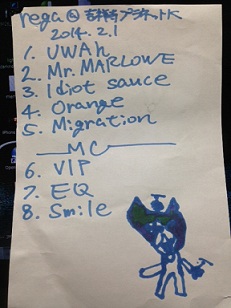 rega @
2014. 2.1
1. UWAh
2. Mr. MARLOWE
3. Idiot sauce
4. Orange
5. Migration
MC
6. VIP
7. EQ
8. Smile